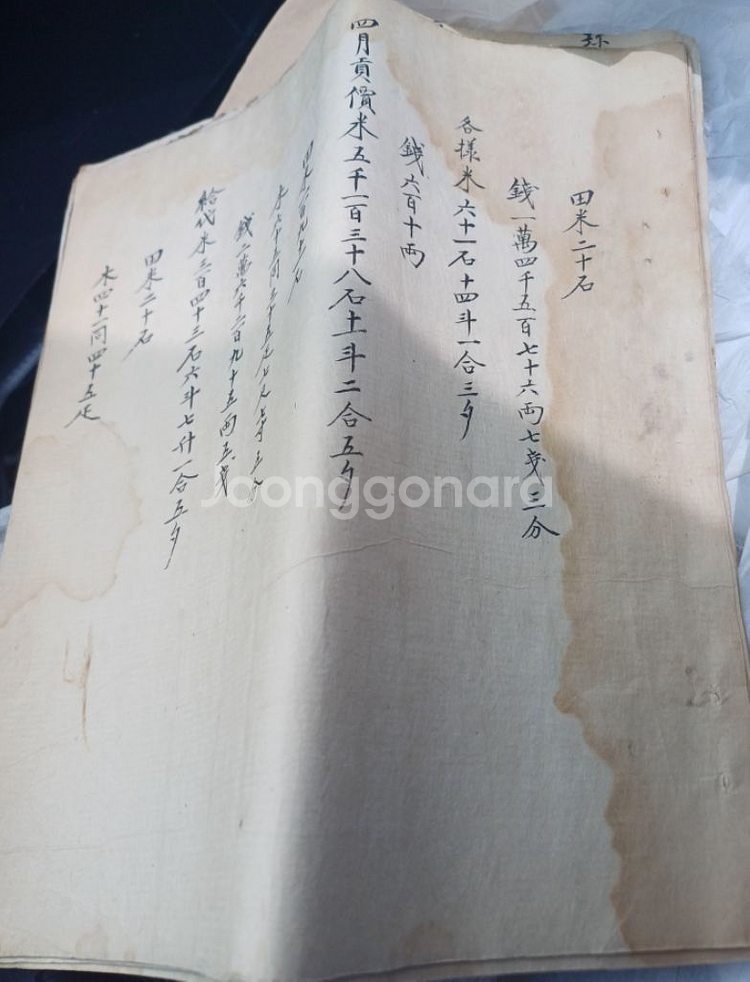 田米二十石
錢一萬四千五百七十六兩七戔三分
各樣米六十一石十四斗一合三夕
錢六百十兩
四月貢價米五千一百三十八石十一斗二合五夕
田米
錢二萬六千二百九十五兩五戔
給代米二百四十三石六斗七升一合五夕
田米二十石
木四十一同四十五疋
Joonggonara